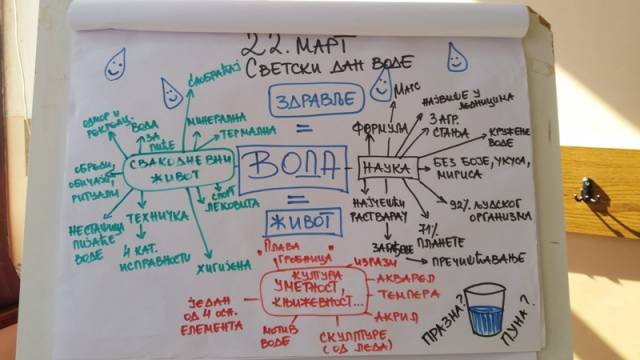 22. МАРТ
СВЕТСКИ ДАН ВОДЕ
ЗДРАВЉЕ
=
ВОДА
=
ЖИВОТ
СВАКОДНЕВНИ
ЖИВОТ
САОБРАЋАЈ
ОДМОР И
ВОДА
ЗА
ПИЋЕ
МИНЕРАЛНА
ТЕРМАЛНА
ОБРЕДИ,
ОБИЧАЈИ,
РИТУАЛИ
СПОРТ
ЛЕКОВИТА
НЕСТАШИЦА
ПИЈАЋЕ
ВОДЕ
ТЕХНИЧКА
4 КАТ.
ИСПРАВНОСТИ
ХИГИЈЕНА
НАУКА
ФОРМУЛА
МАРС
НАЈВИШЕ У
ЛЕДНИЦИМА
3 АГР.
СТАЊА
КРУЖЕЊЕ
ВОДЕ
БЕЗ БОЈЕ, УКУСА,
МИРИСА
92% ЉУДСКОГ
ОРГАНИЗМА
71%
ПЛАНЕТЕ
НАЈВЕЋИ
РАСТВАРАЧ
ЗАГАЂЕЊЕ
ПРЕЧИШЋАВАЊЕ
КУЛТУРА
УМЕТНОСТ,
КЊИЖЕВНОСТ...
ПЛАВА
ГРОБНИЦА
ИЗРАЗИ
АКВАРЕЛ
ТЕМПЕРА
АКРИЛ
СКУЛПТУРЕ
(ОД ЛЕДА)
МОТИВ
ВОДЕ
ЈЕДАН
ОД 4 ОСН.
ЕЛЕМЕНТА
ПРАЗНА?
ПУНА?